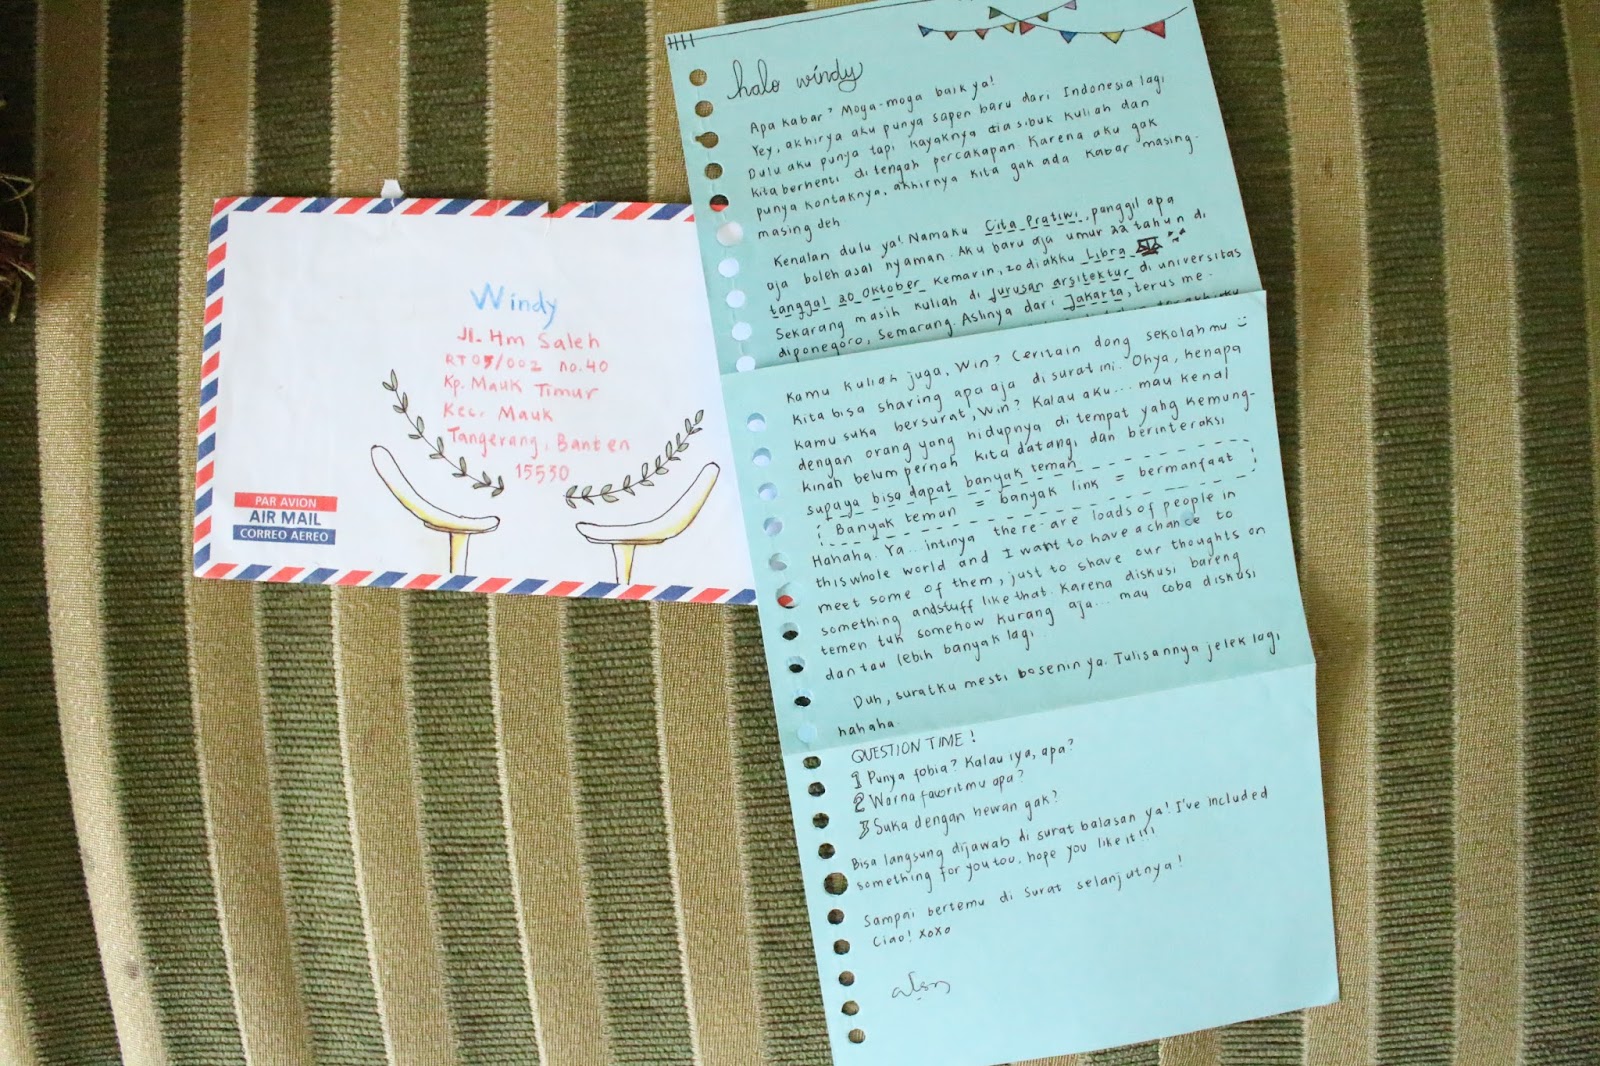 Windy
Jl. Hm Saleh
RT 05/002 no.40
Kp. Mauk Timur
Kec. Mauk
Tangerang, Banten
15530
PAR AVION
AIR MAIL
CORREO AEREO
halo windy
Apa kabar? Moga-moga baik ya!
Yey, akhirya aku punya sapen baru dari Indonesia lagi
Dulu aku punya tapi kayaknya dia sibuk kuliah dan
kita berhenti ditengah percakapan. Karena aku gak
punya kontaknya, akhirnya kita gak ada kabar masing-
masing deh
Kenalan dulu ya! Namaku Cita Pratiwi, panggil apa
aja boleh asal nyaman. Aku baru aja umur 22 tahun di
tanggal 20 Oktober kemarin, zodiakku Libra
Sekarang masih kuliah di jurusan arsitektur di universitas
diponegoro, Semarang. Aslinya dari Jakarta, terus me-
Kamu kuliah juga, Win? Ceritain dong sekolahmu
kita bisa sharing apa aja di surat ini. Ohya, kenapa
kamu suka bersurat, Win? Kalau aku... mau kenal
dengan orang yang hidupnya di tempat yang kemung-
kinan belum pernah kita datangi dan berinteraksi
supaya bisa dapat banyak teman
Banyak teman = banyak link = bermanfaat
Hahaha. Ya... intinya there are loads of people in
this whole world and I want to have a chance to
meet some of them, just to share our thoughts on
something and stuff like that. Karena diskusi bareng
temen tuk somehow kurang aja... mau coba diskusi
dan tau lebih banyak lagi
Duh, suratku mesti bosenin ya. Tulisannya jelek lagi
hahaha.
QUESTION TIME!
1 Punya fobia? Kalau iya, apa?
2 Warna favoritmu apa?
3 Suka dengan hewan gak?
Bisa langsung dijawab di surat balasan ya! I've included
something for you too, hope you like it!!!
Sampai bertemu di surat selanjutnya!
Ciao! xoxo